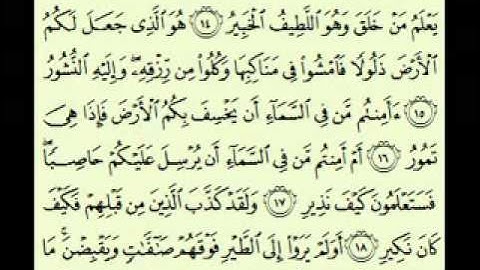 يَعْلَمُ مَنْ خَلَقَ وَهُوَ اللَّطِيفُ الْخَبِيرُ ١٤ هُوَ الَّذِى جَعَلَ لَكُمُ
الْأَرْضَ ذَلُولًا فَامْشُوا فِى مَنَاكِبِهَا وَكُلُوا مِن رِّزْقِهِ ۖ وَإِلَيْهِ النُّشُورُ
١٥ ءَأَمِنتُم مَّن فِى السَّمَاءِ أَن يَخْسِفَ بِكُمُ الْأَرْضَ فَإِذَا هِىَ
تَمُورُ ١٦ أَمْ أَمِنتُم مَّن فِى السَّمَاءِ أَن يُرْسِلَ عَلَيْكُمْ حَاصِبًا ۖ
فَسَتَعْلَمُونَ كَيْفَ نَذِيرِ ١٧ وَلَقَدْ كَذَّبَ الَّذِينَ مِن قَبْلِهِمْ فَكَيْفَ
كَانَ نَكِيرِ ١٨ أَوَلَمْ يَرَوْا إِلَى الطَّيْرِ فَوْقَهُمْ صَٰٓفَّٰتٍ وَيَقْبِضْنَ ۚ مَا